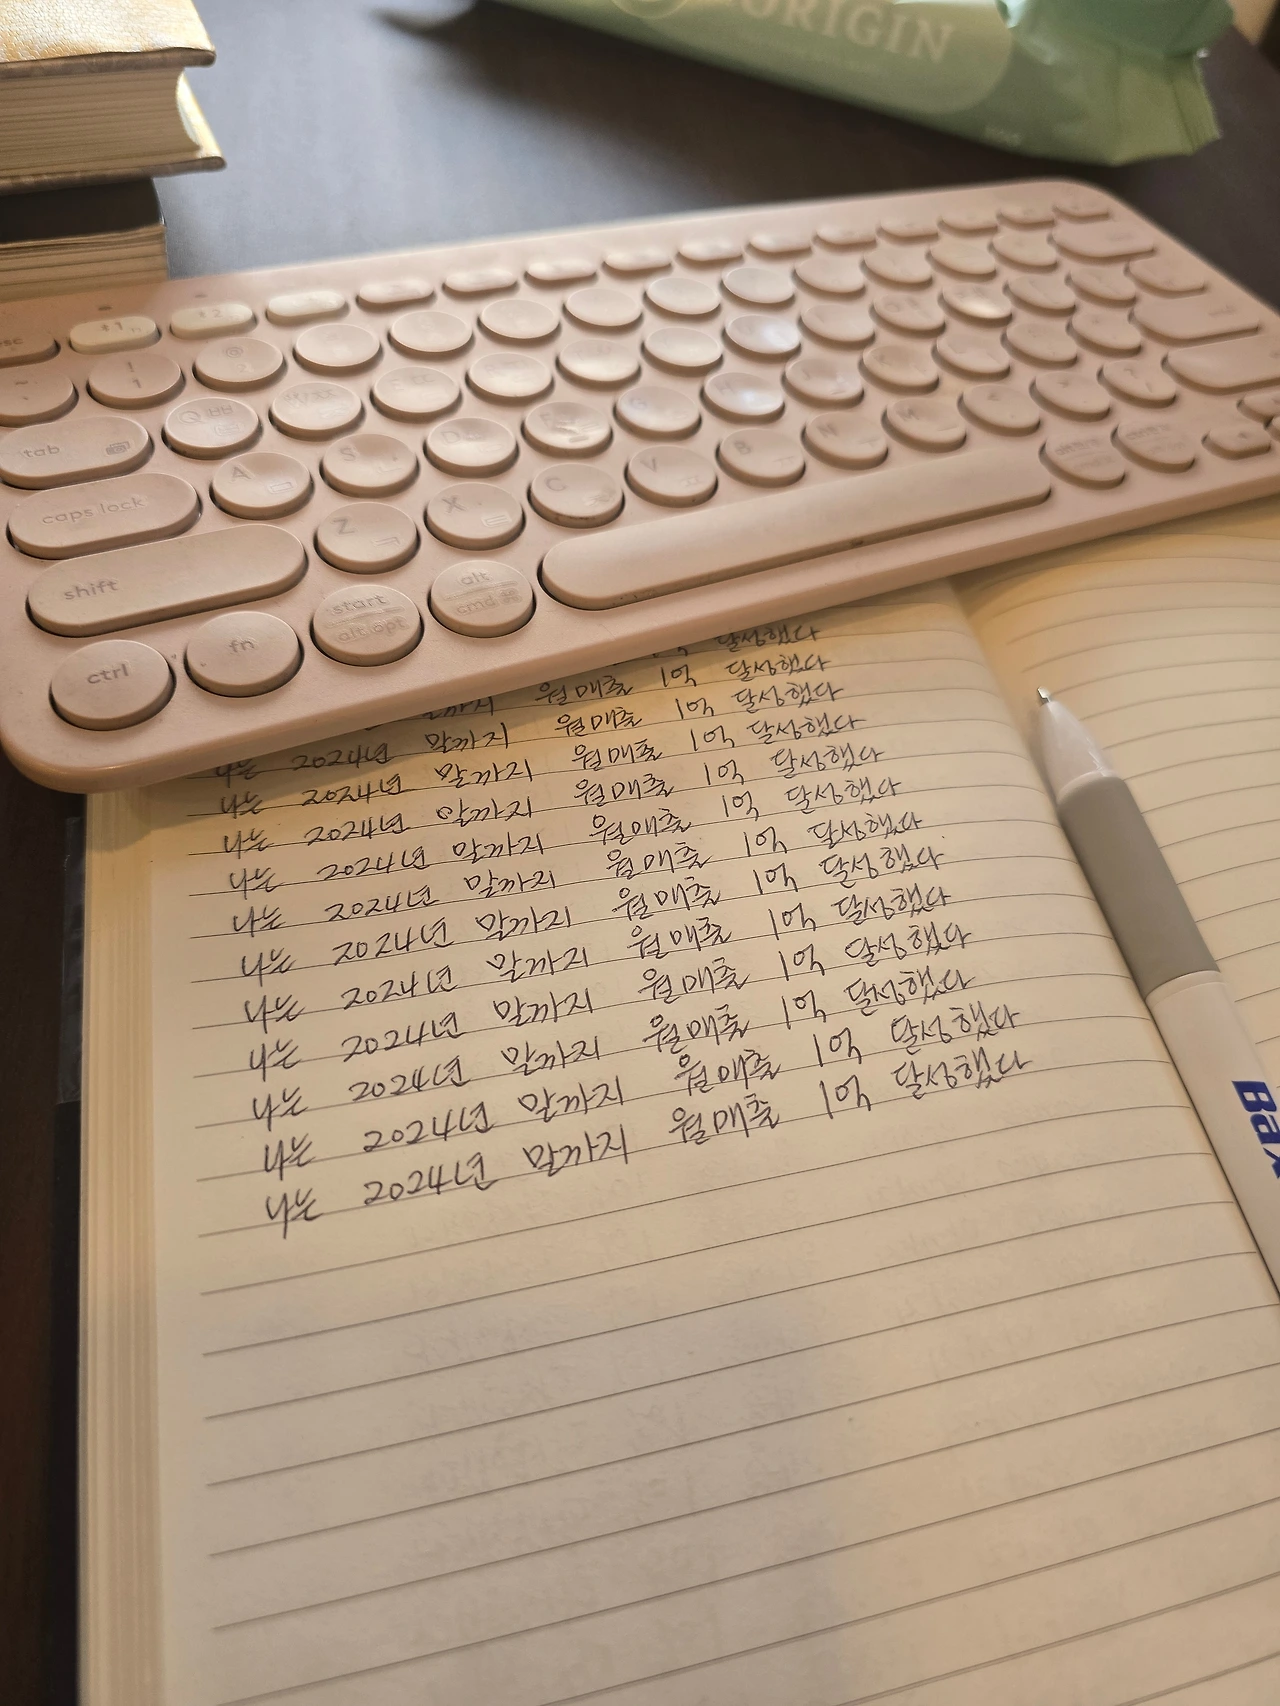 ORIGIN
1
2
tab Q
caps lock A S D
shift Z X C V B N M
ctrl fn start alt
alt opt cmd
달성했다
월매출 1억 달성했다
나는 2024년 말까지 월매출 1억 달성했다
나는 2024년 말까지 월매출 1억 달성했다
나는 2024년 말까지 월매출 1억 달성했다
나는 2024년 말까지 월매출 1억 달성했다
나는 2024년 말까지 월매출 1억 달성했다
나는 2024년 말까지 월매출 1억 달성했다
나는 2024년 말까지 월매출 1억 달성했다
나는 2024년 말까지 월매출 1억 달성했다
나는 2024년 말까지 월매출 1억 달성했다
나는 2024년 말까지 월매출 1억 달성했다
나는 2024년 말까지 월매출 1억 달성했다